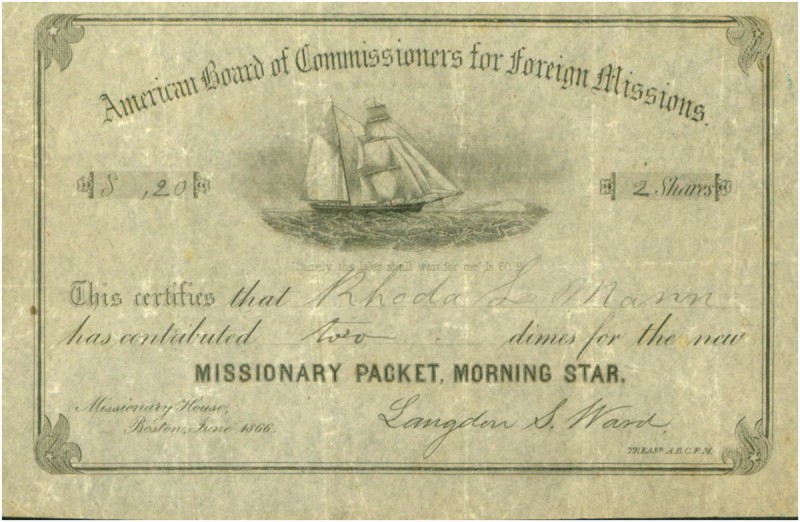 American Board of Commissioners for Foreign Missions.
$ ,20
2 Shares
"Surely the isles shall wait for me" Is. 60. 9.
This certifies that Rhoda L. Mann
has contributed two dimes for the new
MISSIONARY PACKET, MORNING STAR.
Missionary House,
Boston, June 1866.
Langdon S. Ward.
TREASR. A.B.C.F.M.